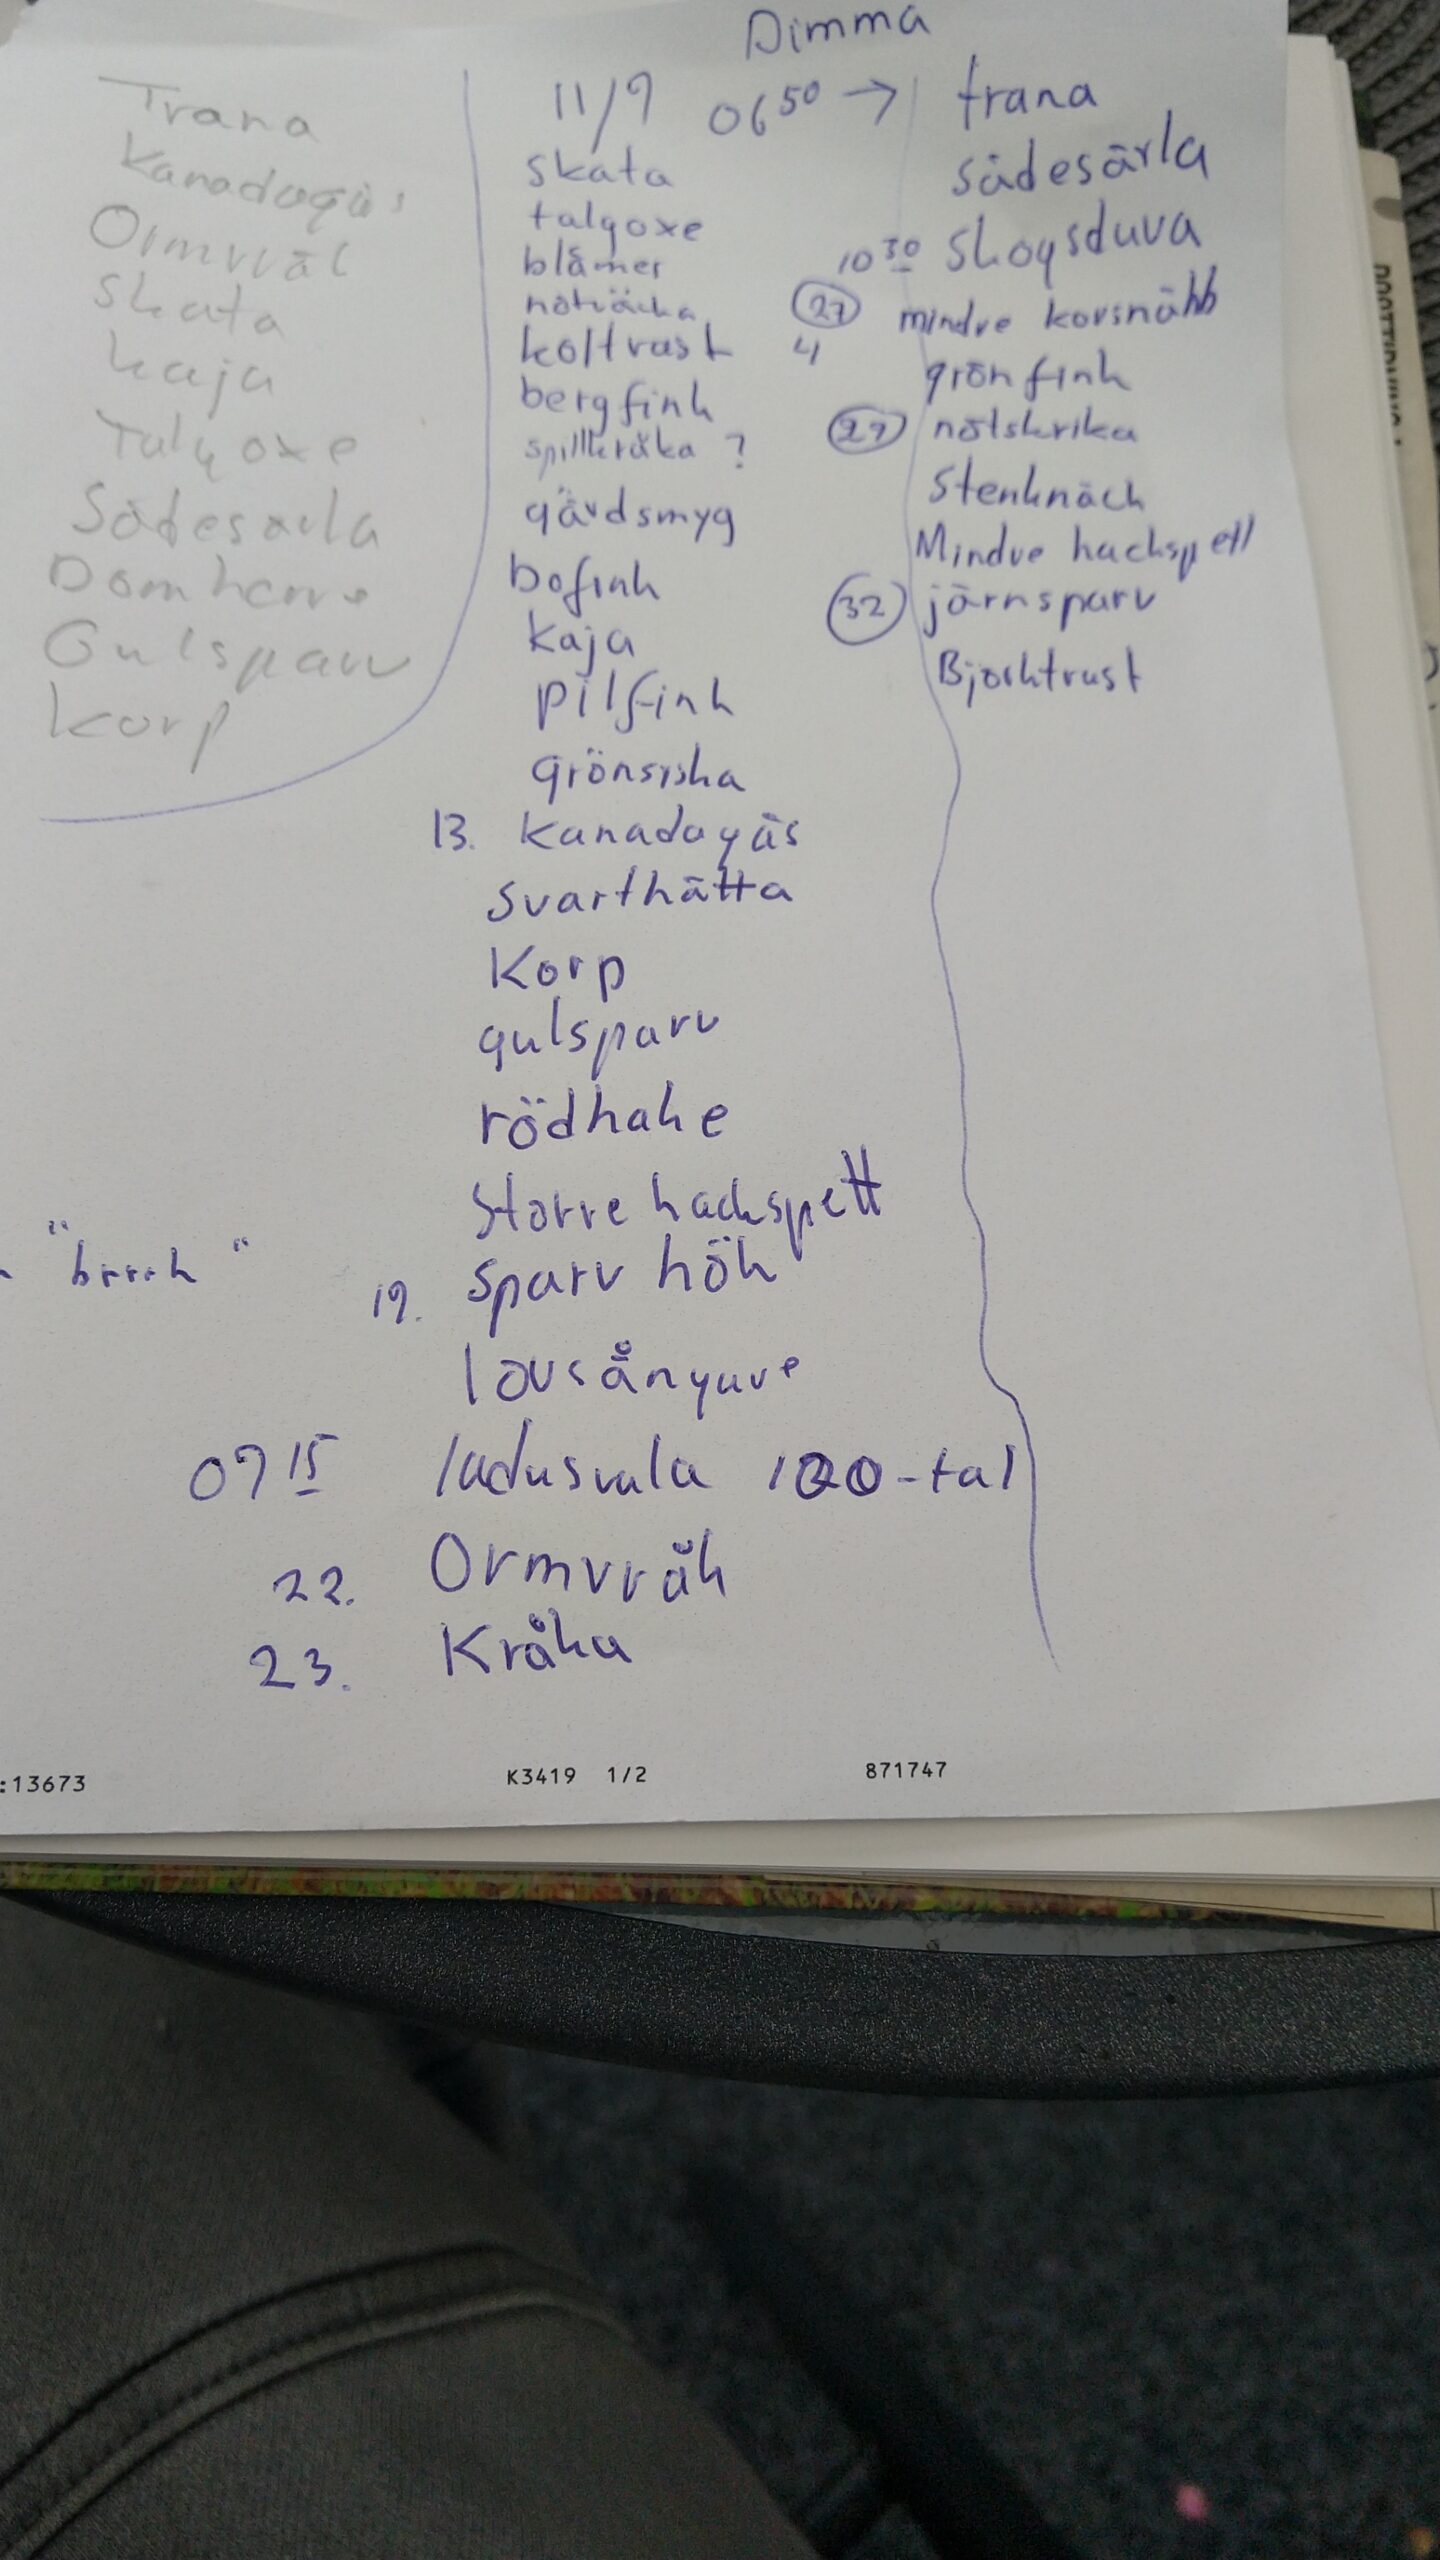 Trana
Kanadagås
Ormvråk
Skata
kaja
Talgoxe
Sädesärla
Domherre
Gulsparv
korp
"brrrk"
Dimma
11/9 06 50 →
skata
talgoxe
blåmes
nötväcka
koltrast 4
bergfink
spillkråka ?
gärdsmyg
bofink
kaja
pilfink
grönsiska
13. kanadagås
svarthätta
Korp
gulsparv
rödhake
Större hackspett
19. sparv hök
lövsångare
09 15 ladusvala 100-tal
22. Ormvråk
23. Kråka
trana
sädesärla
10 30 Skogsduva
27 mindre korsnäbb
grönfink
29 nötskrika
Stenknäck
Mindre hackspett
32 järnsparv
Björktrast
:13673 K3419 1/2 871747